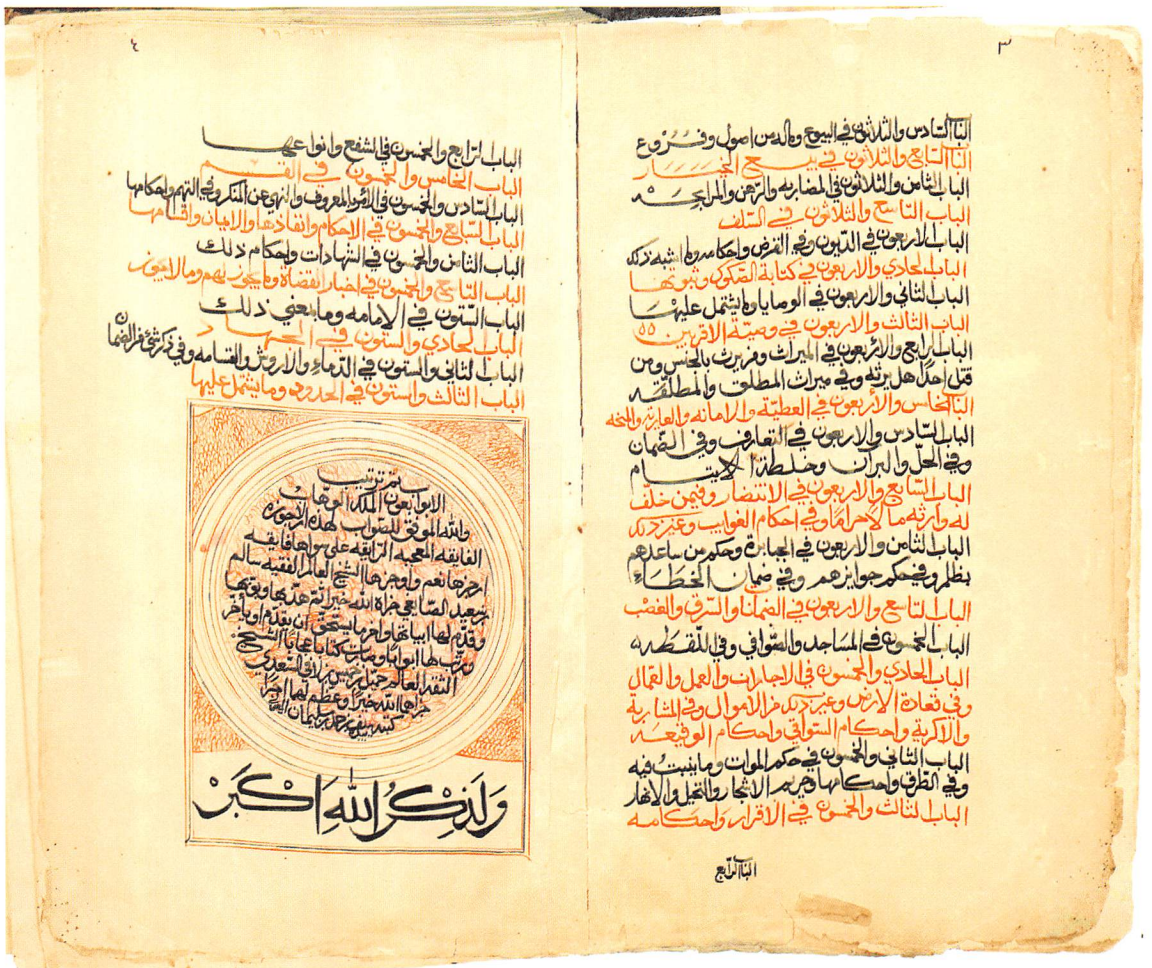 ٣
الباب السادس والثلاثون في البيوع وماله من اصول وفروع
الباب السابع والثلاثون في بيع الخيار
الباب الثامن والثلاثون في المضاربه والرهن والمرابحه
الباب التاسع والثلاثون في السلف
الباب الاربعون في الدين وفي القرض واحكامه وما اشبه ذلك
الباب الحادي والاربعون في كتابة الصكوك وثبوتها
الباب الثاني والاربعون في الوصايا وما يشتمل عليها
الباب الثالث والاربعون في وصية الاقربين
الباب الرابع والاربعون في الميراث ومن يرث بالجنس ومن
قتل احدا هل يرثه وفي ميراث المطلق والمطلقه
الباب الخامس والاربعون في العطية والامانه والعارية والمنحه
الباب السادس والاربعون في التعارف وفي الضمان
وفي الحل والبران وخلطة الايتام
الباب السابع والاربعون في الانتصار وفيمن خلف
له وارثه مالا حراما وفي احكام الغوايب وغير ذلك
الباب الثامن والاربعون في الجبابرة وحكم من ساعدهم
بظلم وفي حكم جوايزهم وفي ضمان الخطاء
الباب التاسع والاربعون في الضمانا والسرق والغصب
الباب الخمسون في المساجد والصوافي وفي اللقطه
الباب الحادي والخمسون في الاجارات والعمل والعمال
وفي قعادة الارض وغير ذلك من الاموال وفي المشاربة
والاكرية واحكام السواقي واحكام الوقيعه
الباب الثاني والخمسون في حكم الموات وما ينبت فيه
وفي الطرق واحكامها وحريم الاشجار والنخيل والانهار
الباب الثالث والخمسون في الاقرار واحكامه
الباب الرابع
٤
الباب الرابع والخمسون في الشفع وانواعها
الباب الخامس والخمسون في القسم
الباب السادس والخمسون في الامر بالمعروف والنهي عن المنكر وفي التهم واحكامها
الباب السابع والخمسون في الاحكام وانفاذها والايمان واقسامها
الباب الثامن والخمسون في الشهادات واحكام ذلك
الباب التاسع والخمسون في اخبار القضاة وما يجوز لهم وما لا يجوز
الباب الستون في الامامه وما بمعني ذلك
الباب الحادي والستون في الجهاد
الباب الثاني والستون في الدماء والاروش والقسامه وفي ذكر شئ من الضمان
الباب الثالث والستون في الحدود وما يشتمل عليها
تم ترتيب
الابواب بعون الملك الوهاب
والله الموفق للصواب لهذه الارجوزه
الفايقه المعجبه الرايقه على سواها فايقه
ارجزها نعم واوجزها الشيخ العالم الفقيه سالم
بن سعيد الصايغي جزاه الله خيرا ثم هذبها وبوبها
وقدم لها ابياتها واخر ما يستحق ان يقدم او يأخر
ورتب لها ابوابا وصارت كتابا عجابا الشيخ
الثقه العالم جميل بن خميس بن لافي السعدي
جزاهما الله خيرا وعظم لهما اجرا
كتبه بيده محمد بن سليمان
ولذكر الله اكبر